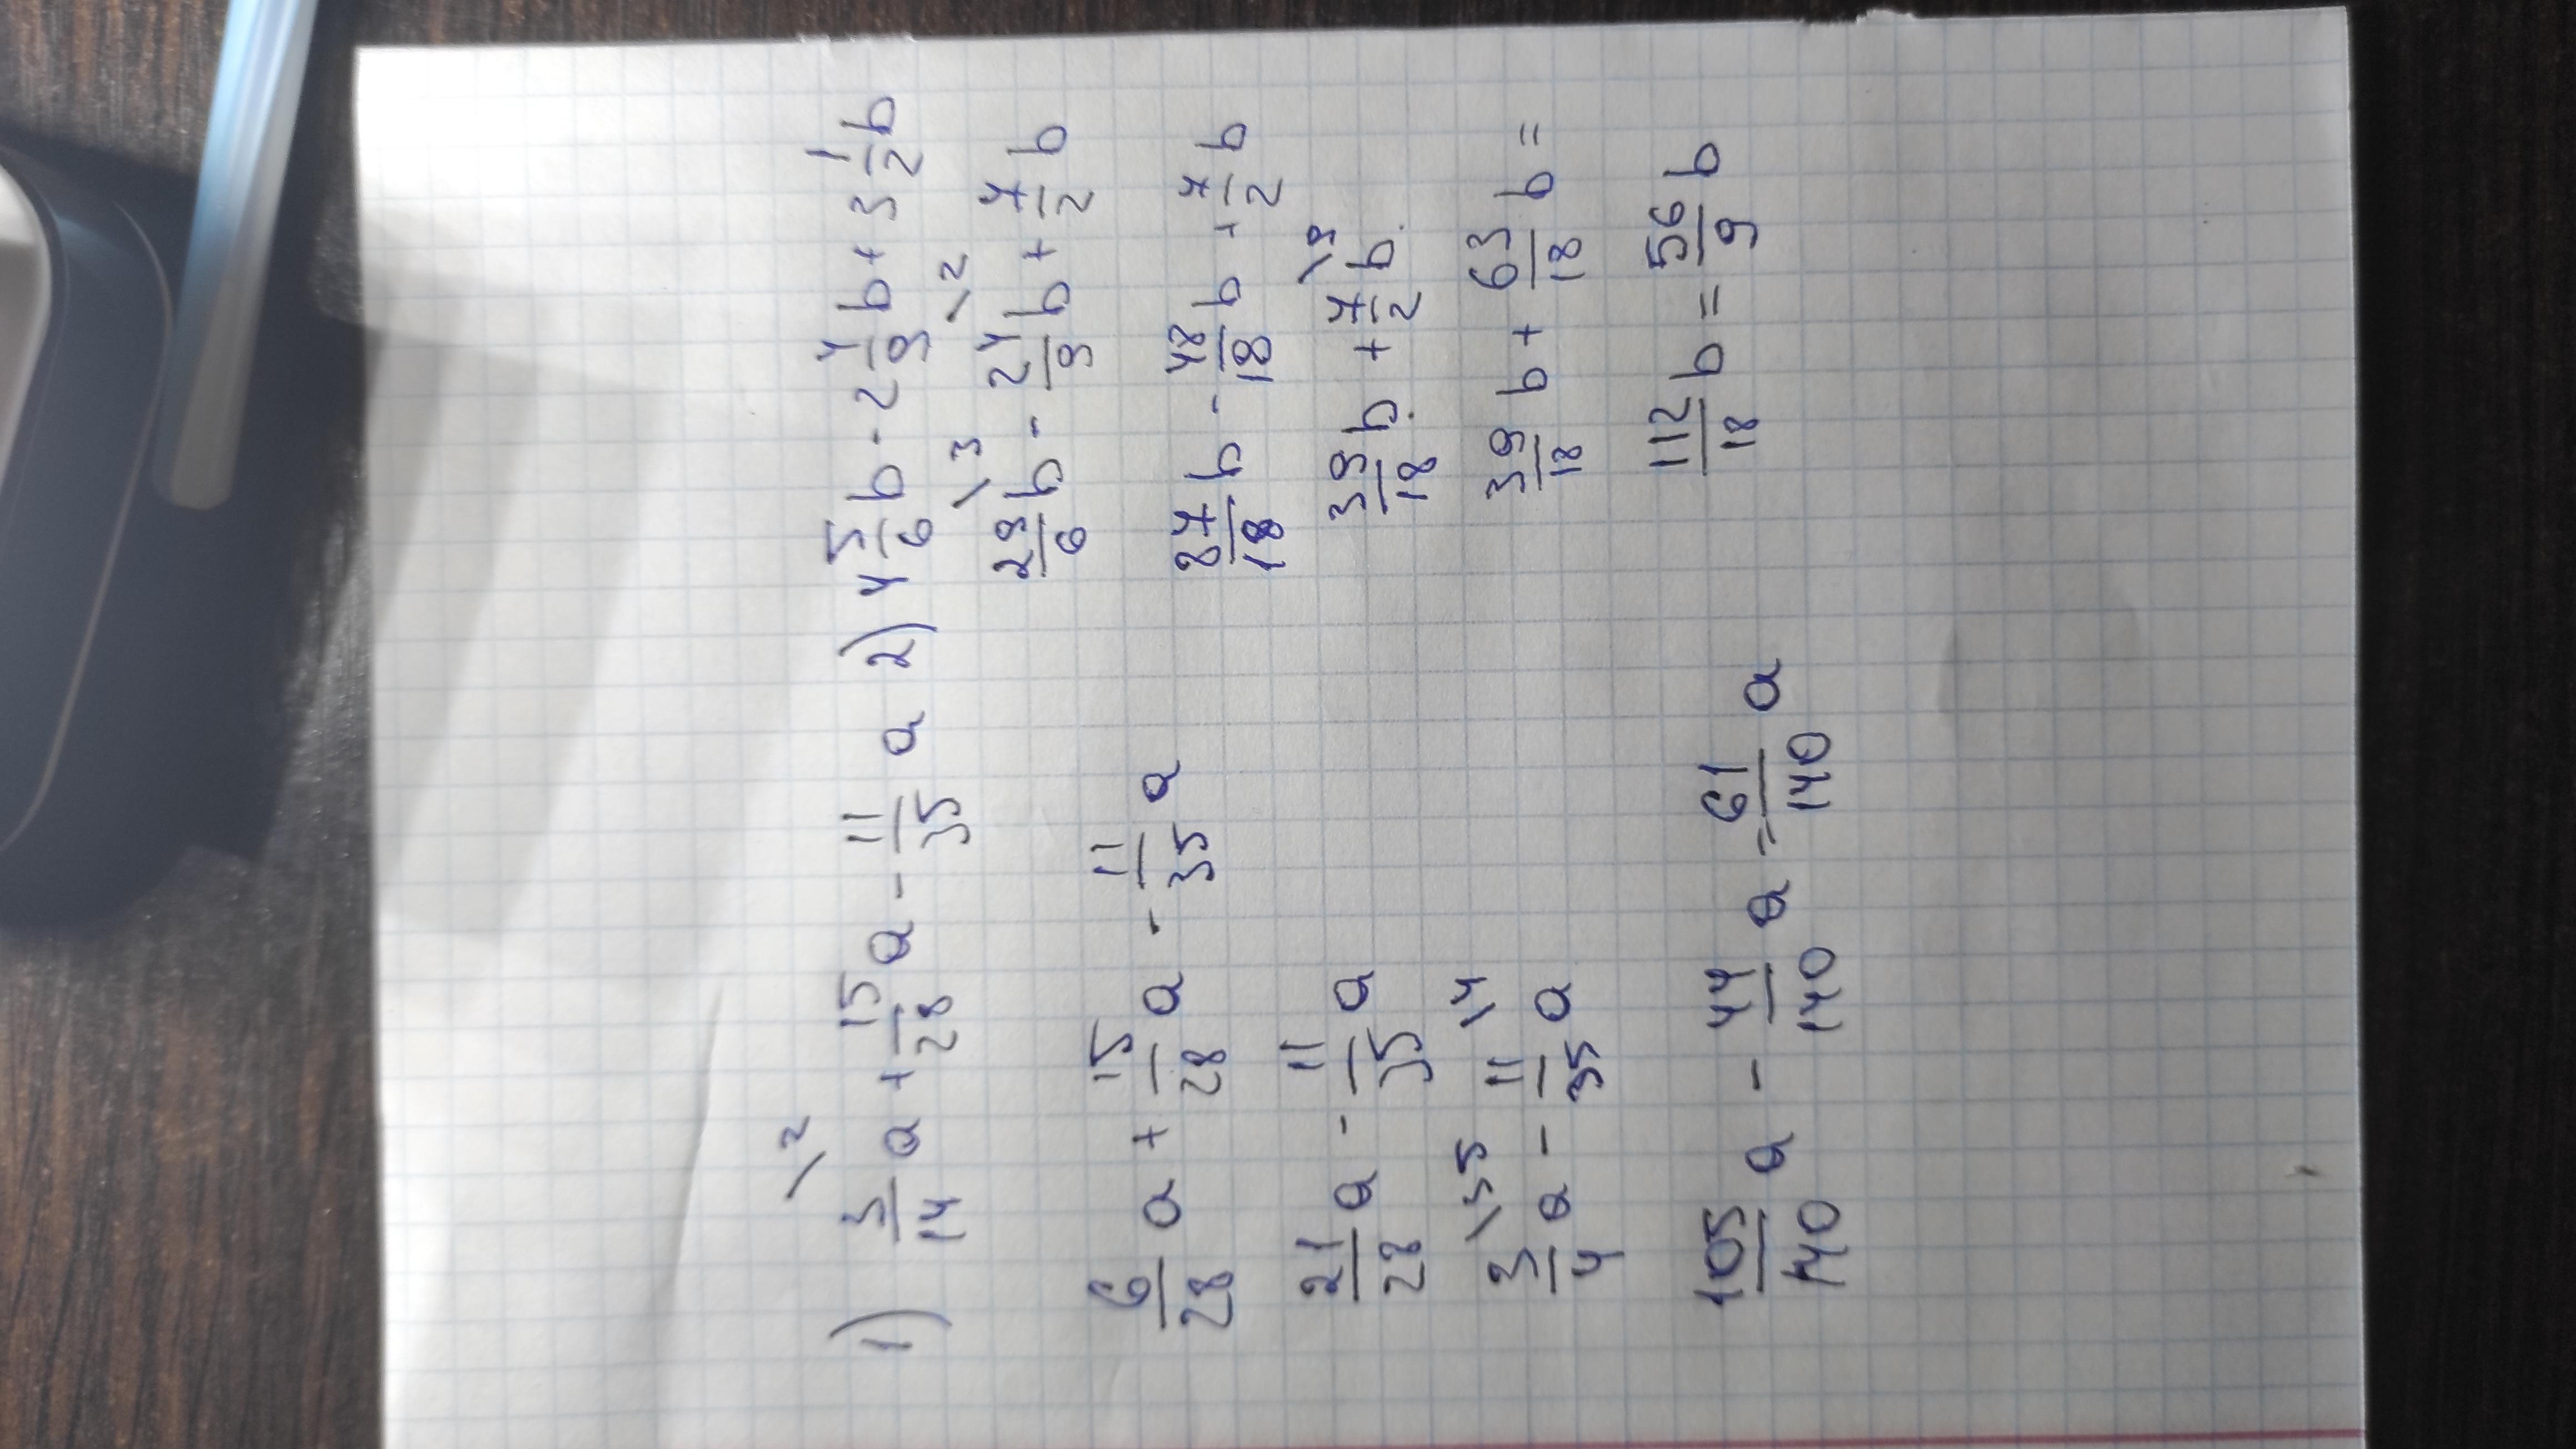 1) 3/14 a \2 + 15/28 a - 11/35 a
6/28 a + 15/28 a - 11/35 a
21/28 a - 11/35 a
3/4 a \35 - 11/35 a \4
105/140 a - 44/140 a = 61/140 a
2) 4 5/6 b - 2 4/9 b + 3 1/2 b
29/6 b \3 - 24/9 b \2 + 7/2 b
87/18 b - 48/18 b + 7/2 b
39/18 b + 7/2 b \9
39/18 b + 63/18 b =
112/18 b = 56/9 b